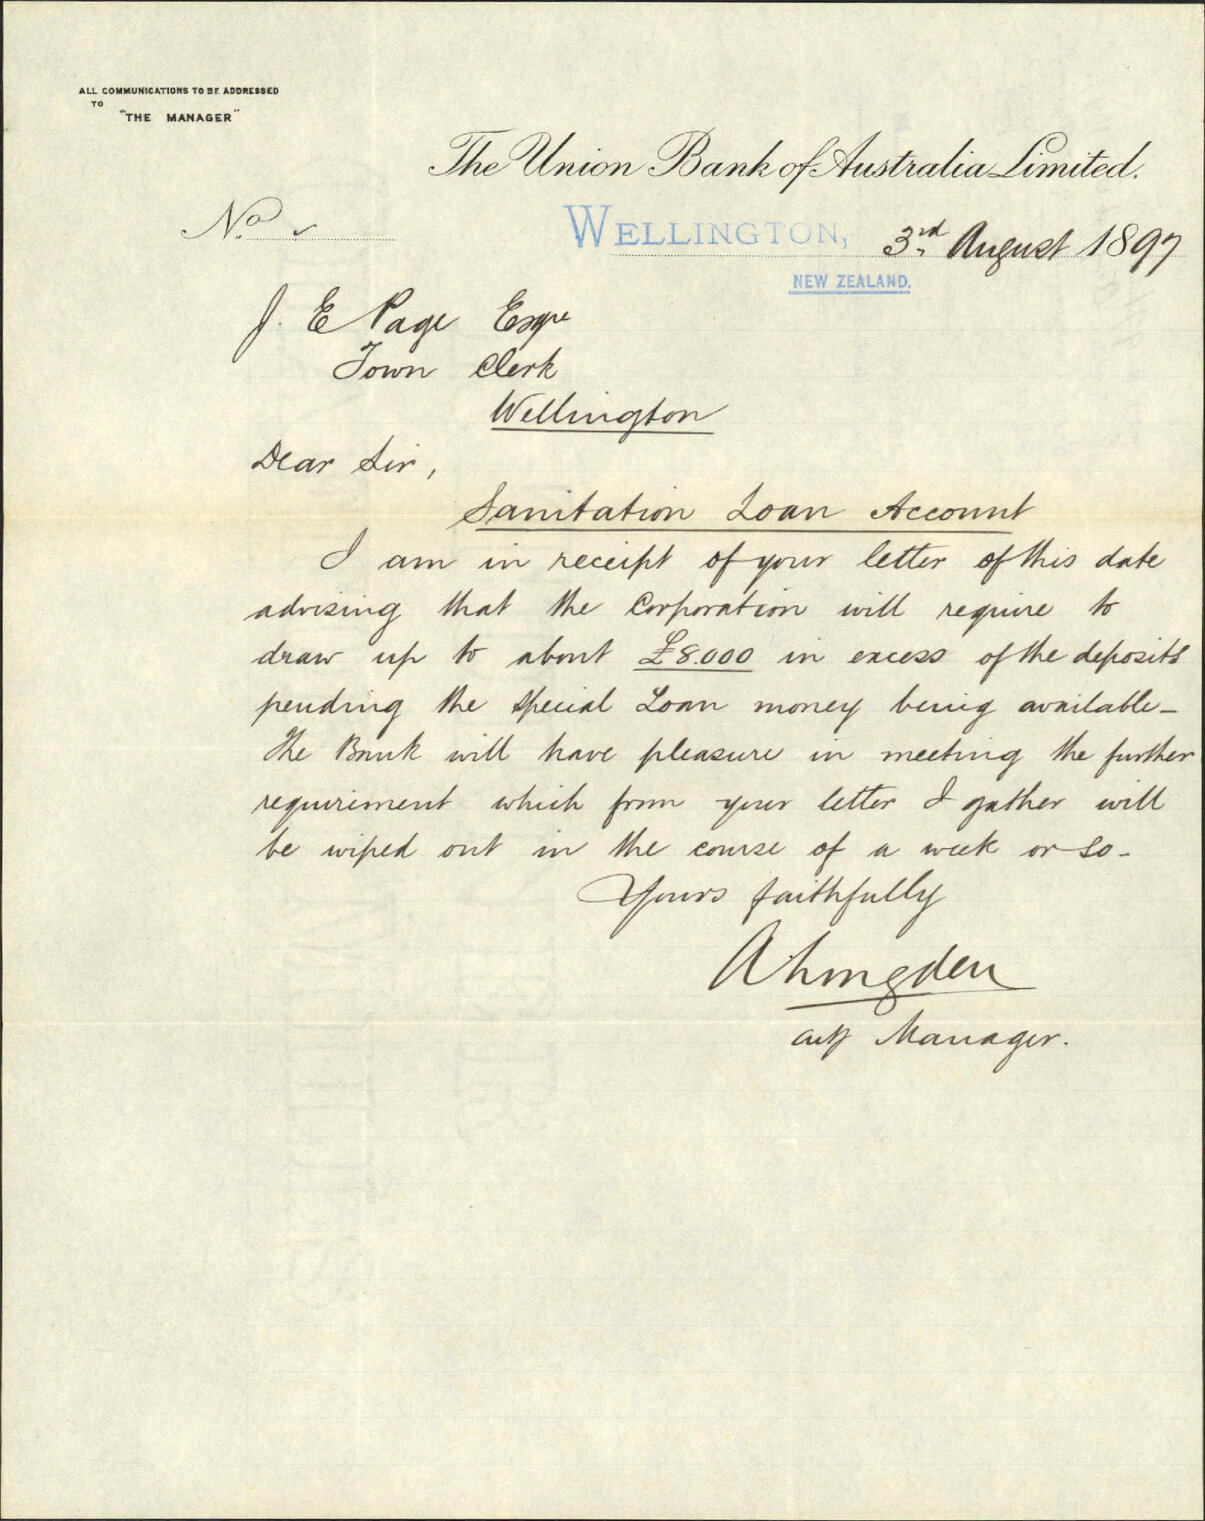 ALL COMMUNICATIONS TO BE ADDRESSED
TO
"THE MANAGER"
The Union Bank of Australia Limited.
No.
WELLINGTON, 3rd August 1897
NEW ZEALAND.
J. E Page Esqre
Town Clerk
Wellington
Dear Sir,
Sanitation Loan Account
I am in receipt of your letter of this date
advising that the Corporation will require to
draw up to about £8.000 in excess of the deposits
pending the special Loan money being available_
The Bank will have pleasure in meeting the further
requirement which from your letter I gather will
be wiped out in the course of a week or so_
Yours faithfully
Manager.